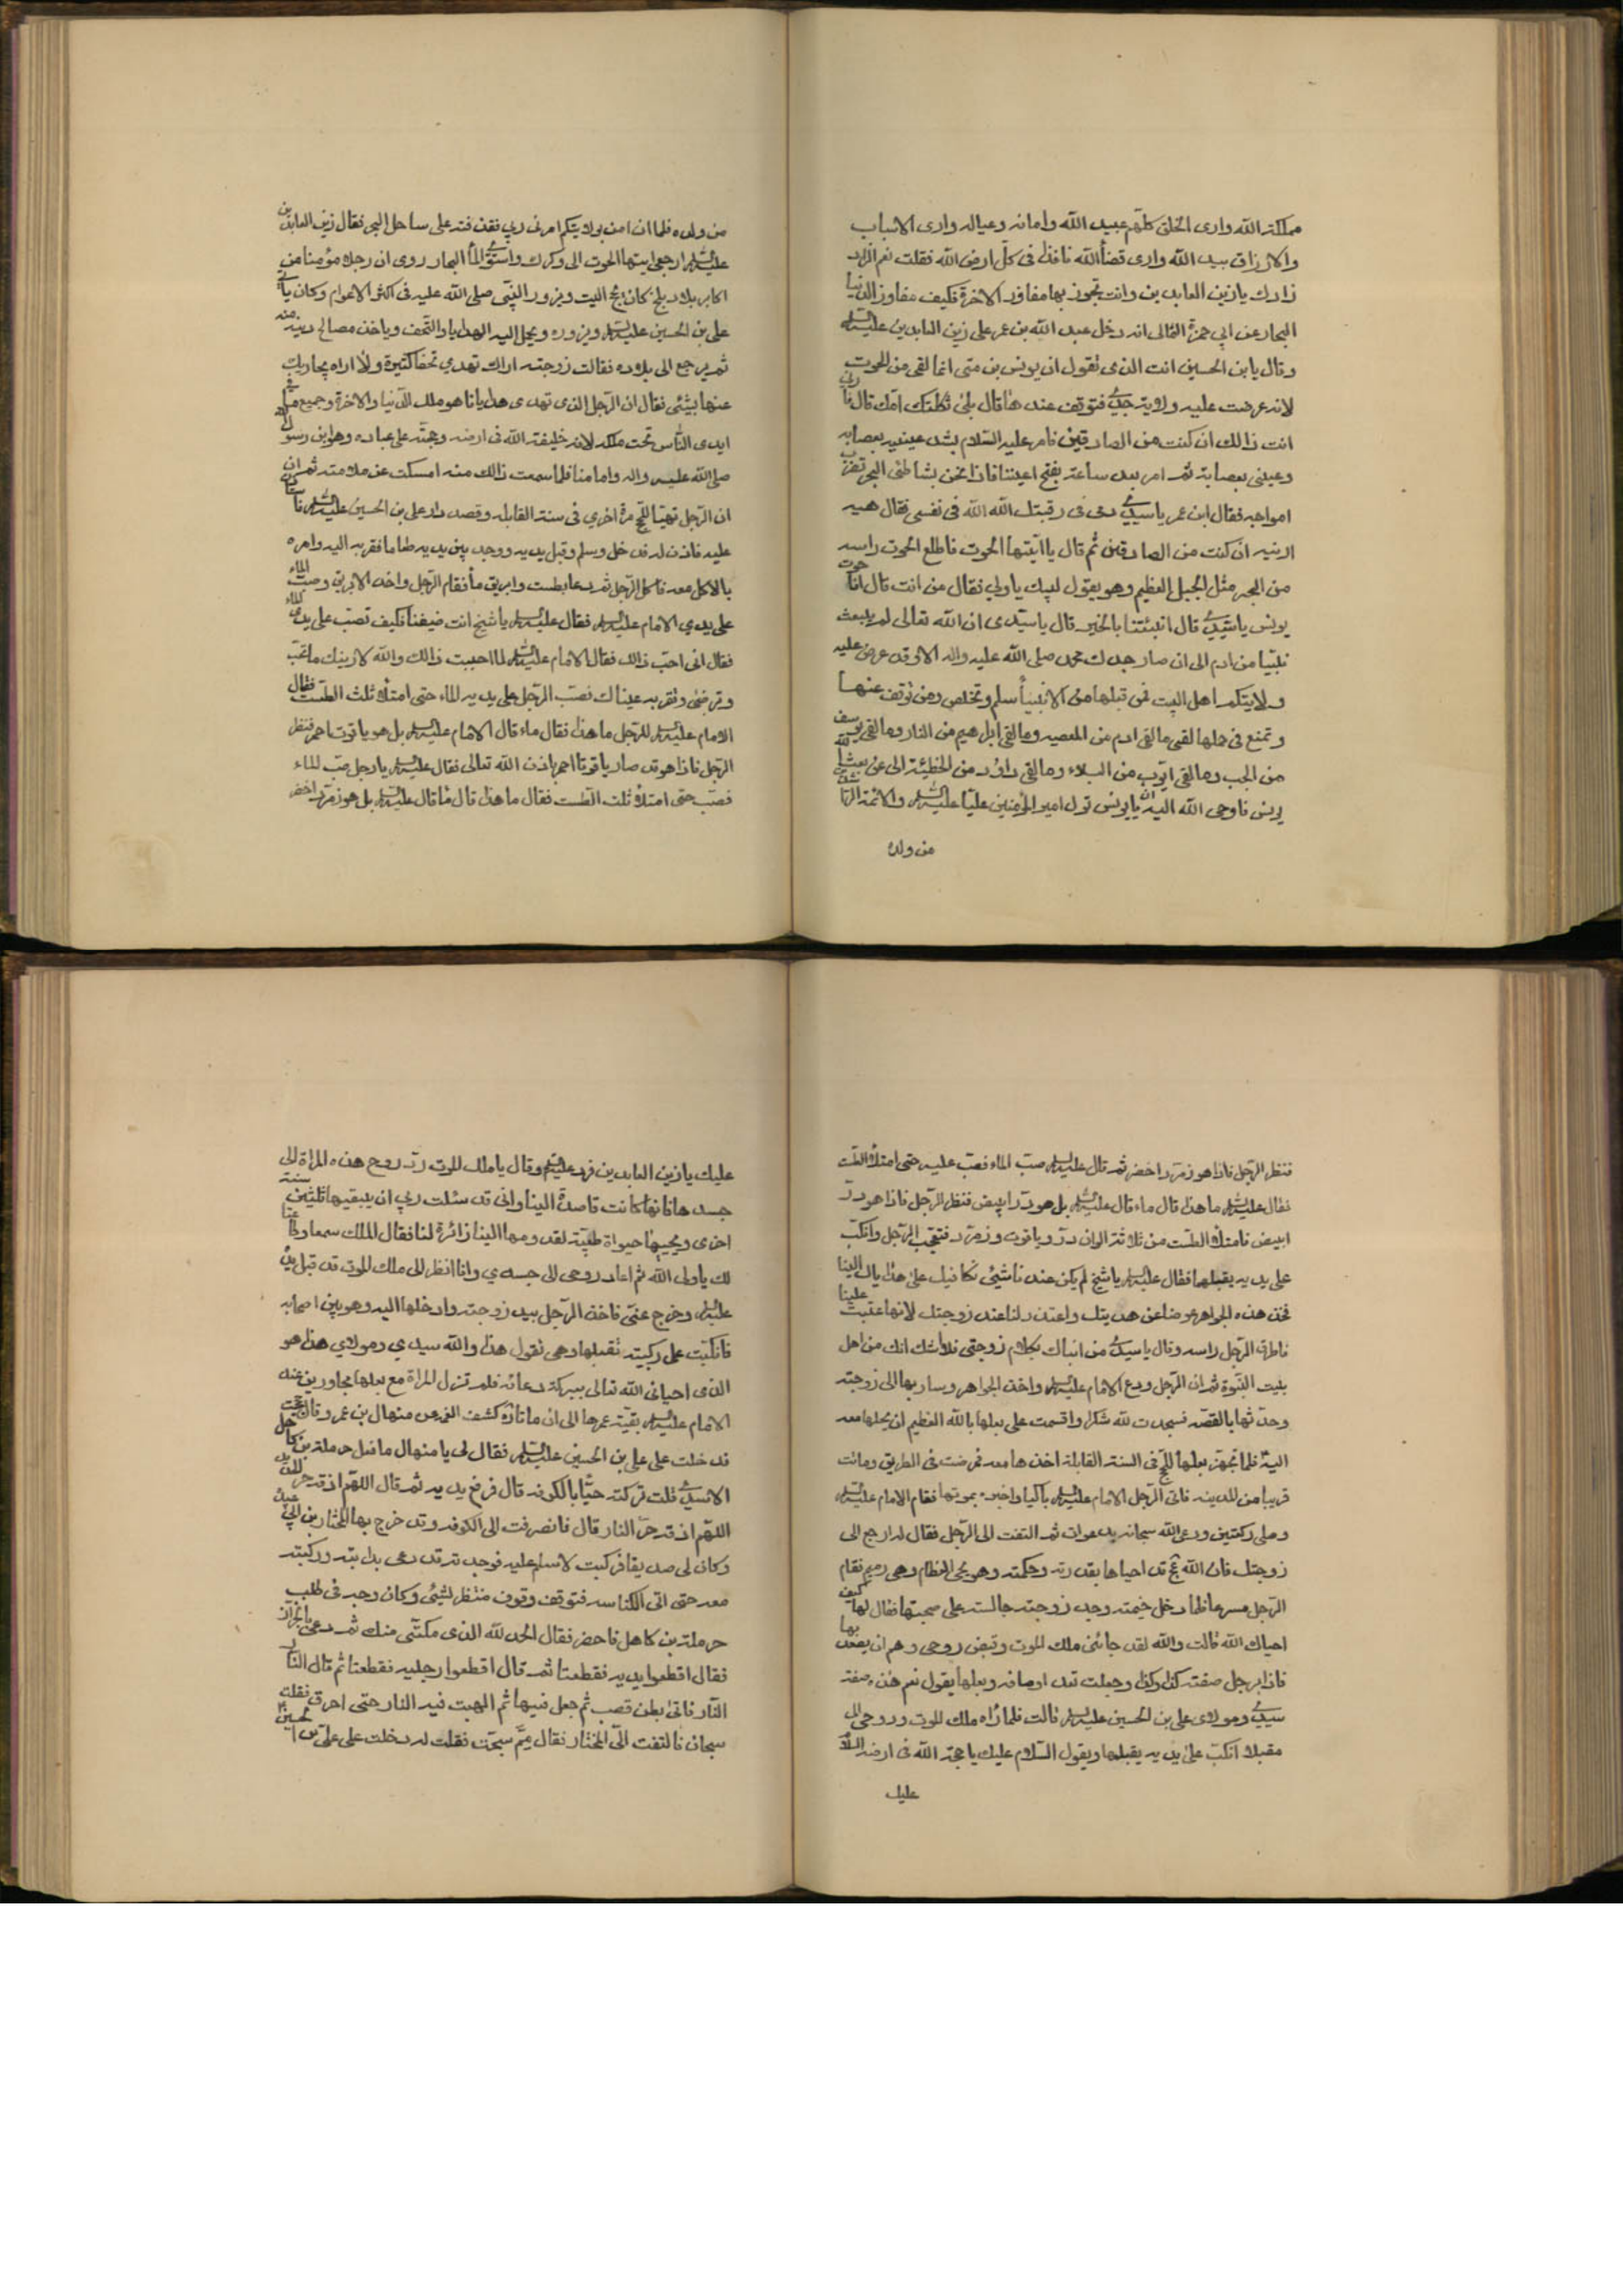 مملكة الله وارى الخلق كلهم عبيد الله وامائه وعياله وارى الاسباب
والارزاق بيد الله وارى قضاء الله نافذ فى كل ارض الله فقلت نعم الزاد
زادك يا زين العابدين وانت تجوز بها مفاوز الاخرة فكيف مفاوز الدنيا
البحار عن ابي حمزة الثمالى انه دخل عبد الله بن عمر على زين العابدين عليه السلام
وقال يا بن الحسين انت الذى تقول ان يونس بن متى انما لقى من الحوت
لانه عرضت عليه ولاية جدي فتوقف عندها قال بلى ثكلتك امك قال فارنى
انت ذالك ان كنت من الصادقين فامر عليه السلام بشد عينيه بعصابه
وعينى بعصابة ثم امر بعد ساعة بفتح اعيننا فاذا نحن بشاطئ البحر تضرب
امواجه فقال ابن عمر يا سيدي دمى فى رقبتك الله الله فى نفسى فقال هيه
ارينه ان كنت من الصادقين ثم قال يا ايتها الحوت فاطلع الحوت راسه
من البحر مثل الجبل العظيم وهو يقول لبيك يا ولي فقال من انت قال انا حوت
يونس يا سيدي قال انبئتنا بالخبر قال يا سيدى ان الله تعالى لم يبعث
نبيا من ادم الى ان صار جدك محمد صلى الله عليه واله الا وقد عرض عليه
ولايتكم اهل البيت فمن قبلها من الانبياء سلم وتخلص ومن توقف عنها
وتمنع فى حملها لقى ما لقى ادم من المعصيه وما لقى ابراهيم من النار وما لقى يوسف
من الجب وما لقى ايوب من البلاء وما لقى داؤد من الخطيئة الى عن بعث الله
يونس فاوحى الله اليه ان يا يونس تول امير المؤمنين عليا عليه السلام والائمة الراشدين
من ولده
من ولده فلما ان امن بولايتكم امرنى ربي فقذفته على ساحل البحر فقال زين العابدين
عليه السلام ارجعى ايتها الحوت الى وكرك واستوى الماء البحار روى ان رجلا مؤمنا من
اكابر بلاد بلخ كان يحج البيت ويزور النبى صلى الله عليه فى اكثر الاعوام وكان ياتى
على بن الحسين عليه السلام ويزوره ويحمل اليه الهدايا والتحف وياخذ مصالح دينه منه
ثم يرجع الى بلاده فقالت زوجته اراك تهدي تحفا كثيرة ولا اراه يجازيك
عنها بشئى فقال ان الرجل الذى تهدى هدايانا هو ملك الدنيا والاخرة وجميع ما فى
ايدى الناس تحت ملكه لانه خليفة الله فى ارضه وحجته على عباده وهو ابن رسول الله
صلى الله عليه واله وامامنا فلما سمعت ذالك منه امسكت عن ملامته ثم ان
ان الرجل تهيا للحج مرة اخري فى سنة القابله وقصد دار على بن الحسين عليه السلام فاستاذن
عليه فاذن له فدخل وسلم وقبل يديه ووجد بين يديه طعاما فقربه اليه وامره
بالاكل معه فاكل الرجل ثم دعا بطست وابريق ماء فقام الرجل واخذ الابريق وصب الماء
على يدي الامام عليه السلام فقال عليه السلام يا شيخ انت ضيفنا فكيف تصب على يدى الماء
فقال انى احب ذالك فقال الامام عليه السلام لما احببت ذالك والله لارينك ما تحب
وترضى وتقر به عيناك فصب الرجل على يديه الماء حتى امتلا ثلث الطست فقال
الامام عليه السلام للرجل ما هذا فقال ماء قال الامام عليه السلام بل هو ياقوت احمر فنظر
الرجل فاذا هو قد صار ياقوتا احمر باذن الله تعالى فقال عليه السلام يا رجل صب الماء
فصب حتى امتلا ثلث الطست فقال ما هذا قال ماء قال عليه السلام بل هو زمرد اخضر
فنظر الرجل فاذا هو زمرد اخضر ثم قال عليه السلام صب الماء فصب عليه حتى امتلا الطست
فقال عليه السلام ما هذا قال ماء قال عليه السلام بل هو در ابيض فنظر الرجل فاذا هو در
ابيض فامتلا الطست من ثلاثة الوان در وياقوت وزمرد فتعجب الرجل وانكب
على يديه يقبلها فقال عليه السلام يا شيخ لم يكن عندنا شيئى نكافيك على هداياك الينا
فخذ هذه الجواهر عوضا عن هديتك واعتذر لنا عند زوجتك لانها عتبت علينا
فاطرق الرجل راسه وقال يا سيدي من انباك بكلام زوجتى فلا شك انك من اهل
بيت النبوة ثم ان الرجل ودع الامام عليه السلام واخذ الجواهر وسار بها الى زوجته
وحدثها بالقصه فسجدت لله شكرا واقسمت على بعلها بالله العظيم ان يحملها معه
اليه فلما تجهز بعلها للحج فى السنة القابلة اخذها معه فمرضت فى الطريق وماتت
قريبا من المدينه فاتى الرجل الامام عليه السلام باكيا واخبره بموتها فقام الامام عليه السلام
وصلى ركعتين ودعى الله سبحانه بدعوات ثم التفت الى الرجل فقال له ارجع الى
زوجتك فان الله عج قد احياها بقدرته وحكمته وهو يحيى العظام وهى رميم فقام
الرجل مسرعا فلما دخل خيمته وجد زوجته جالسة على صحتها فقال لها كيف
احياك الله قالت والله لقد جائنى ملك الموت وقبض روحى وهم ان يصعد بها
فاذا برجل صفته كذا وكذا وجعلت تعد اوصافه وبعلها يقول نعم هذه صفة
سيدي ومولاى على بن الحسين عليه السلام قالت فلما راه ملك الموت
مقبلا انكب على يديه يقبلها ويقول السلام عليك يا حجة الله فى ارضه السلام
عليك
عليك يا زين العابدين فرد عليه السلام وقال يا ملك الموت رد روح هذه المراة الى
جسدها فانها كانت قاصدة الينا وانى قد سئلت ربي ان يبقيها ثلثين سنة
اخرى ويحييها حيواة طيبة لقدومها الينا زائرة لنا فقال الملك سمعا وطاعتا
لك يا ولى الله ثم اعاد روحى الى جسدي وانا انظر الى ملك الموت قد قبل يده
عليه السلام وخرج عنى فاخذ الرجل بيد زوجته وادخلها اليه وهو بين اصحابه
فانكبت على ركبتيه تقبلها وهى تقول هذا والله سيدي ومولاي هذا هو
الذى احيانى الله تعالى ببركة دعائه فلم تزل المراة مع بعلها مجاورين عند
الامام عليه السلام بقية عمرها الى ان ماتا كشف الغمه عن منهال بن عمر وقال حججت
فدخلت على على بن الحسين عليه السلام فقال لى يا منهال ما فعل حرملة بن كاهل
الاسدي قلت تركته حيا بالكوفه قال فرفع يديه ثم قال اللهم اذقه حر الحديد
اللهم اذقه حر النار قال فانصرفت الى الكوفه وقد خرج بها المختار بن ابي عبيد
وكان لى صديقا فركبت لاسلم عليه فوجدته قد دعى بدابته وركبته
معه حتى اتى الكناسه فتوقف وقوف منتظر لشيئى وكان وجه فى طلب
حرملة بن كاهل فاحضر فقال الحمد لله الذى مكننى منك ثم دعى بالجزار
فقال اقطعوا يديه فقطعتا ثم قال اقطعوا رجليه فقطعتا ثم قال النار
النار فاتى بطن قصب ثم جعل فيها ثم الهبت فيه النار حتى احرق فقلت
سبحان فالتفت الى المختار فقال مم سبحت فقلت له دخلت على على بن الحسين